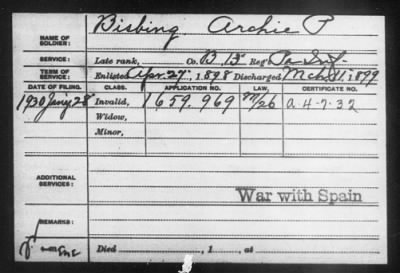 NAME OF SOLDIER: Bisbing, Archie P
SERVICE: Late rank, Co. B, 15 Reg't Pa Inf.
TERM OF SERVICE: Enlisted Apr. 27, 1898 Discharged Mch 11, 1899
DATE OF FILING. CLASS. APPLICATION NO. LAW. CERTIFICATE NO.
1930 Jany 28 Invalid, 1659.969 A-4-7-32
Widow,
Minor,
ADDITIONAL SERVICES:
War with Spain
REMARKS:
Died , 1 , at